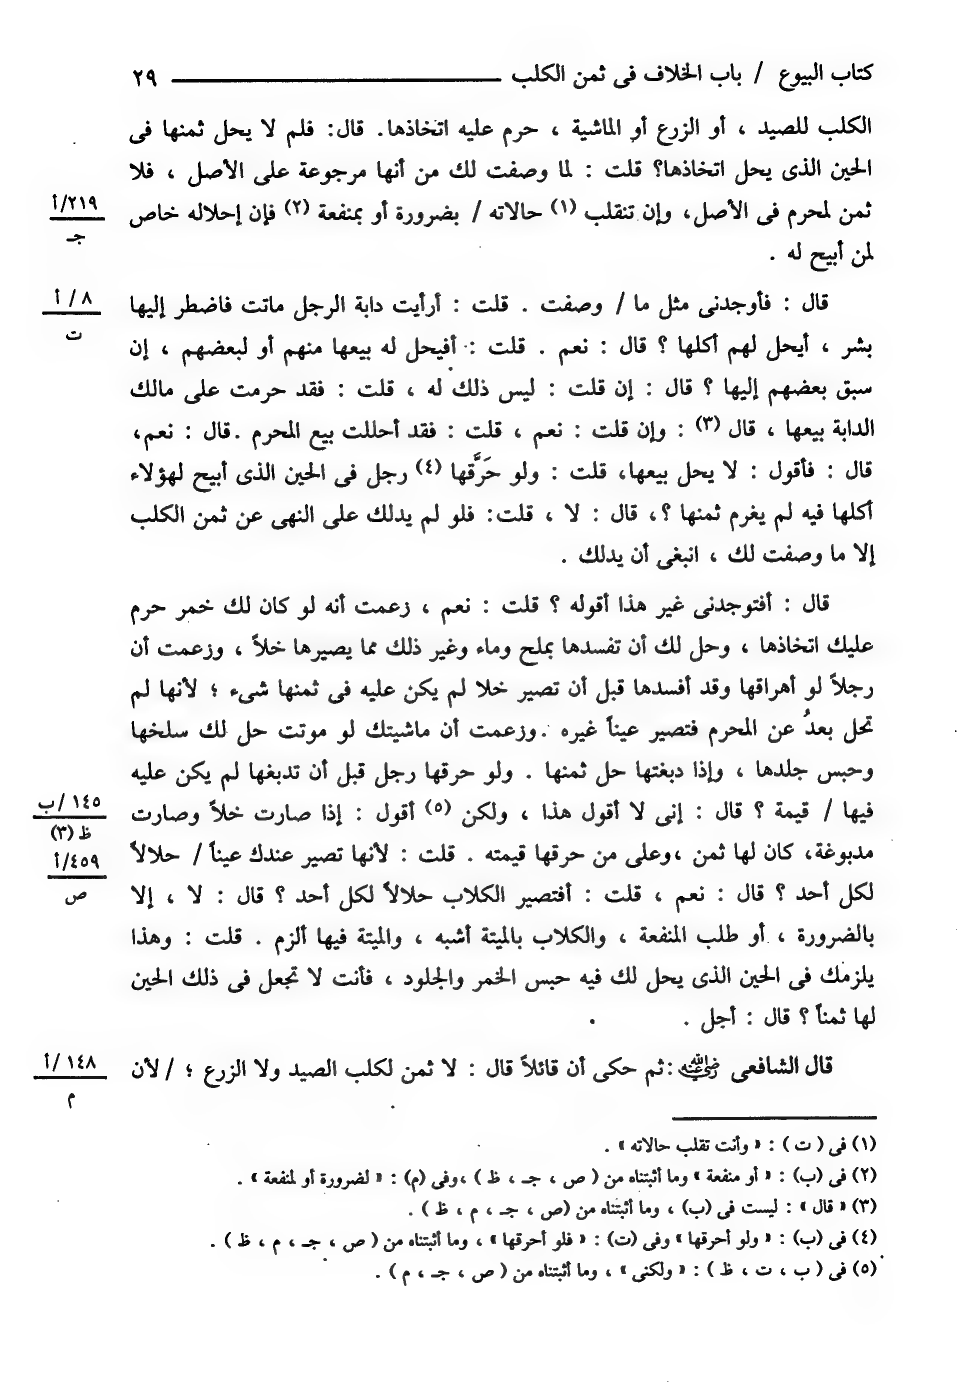 كتاب البيوع / باب الخلاف فى ثمن الكلب ـــــــــــــــــــــــــ ٢٩
الكلب للصيد ، أو الزرع أو الماشية ، حرم عليه اتخاذها. قال: فلم لا يحل ثمنها فى
الحين الذى يحل اتخاذها؟ قلت : لما وصفت لك من أنها مرجوعة على الأصل ، فلا
ثمن لمحرم فى الأصل، وإن تنقلب (١) حالاته / بضرورة أو بمنفعة (٢) فإن إحلاله خاص
٢١٩/أ
جـ
لمن أبيح له .
قال : فأوجدنى مثل ما / وصفت . قلت : أرأيت دابة الرجل ماتت فاضطر إليها
٨ / أ
ت
بشر ، أيحل لهم أكلها ؟ قال : نعم . قلت : أفيحل له بيعها منهم أو لبعضهم ، إن
سبق بعضهم إليها ؟ قال : إن قلت : ليس ذلك له ، قلت : فقد حرمت على مالك
الدابة بيعها ، قال (٣) : وإن قلت : نعم ، قلت : فقد أحللت بيع المحرم .قال : نعم،
قال : فأقول : لا يحل بيعها، قلت : ولو حَرَّقها (٤) رجل فى الحين الذى أبيح لهؤلاء
أكلها فيه لم يغرم ثمنها ؟، قال : لا ، قلت: فلو لم يدلك على النهى عن ثمن الكلب
إلا ما وصفت لك ، انبغى أن يدلك .
قال : أفتوجدنى غير هذا أقوله ؟ قلت : نعم ، زعمت أنه لو كان لك خمر حرم
عليك اتخاذها ، وحل لك أن تفسدها بملح وماء وغير ذلك مما يصيرها خلاً ، وزعمت أن
رجلاً لو أهراقها وقد أفسدها قبل أن تصير خلا لم يكن عليه فى ثمنها شىء ؛ لأنها لم
تحل بعدُ عن المحرم فتصير عيناً غيره .وزعمت أن ماشيتك لو موتت حل لك سلخها
وحبس جلدها ، وإذا دبغتها حل ثمنها . ولو حرقها رجل قبل أن تدبغها لم يكن عليه
فيها / قيمة ؟ قال : إنى لا أقول هذا ، ولكن (٥) أقول : إذا صارت خلاً وصارت
١٤٥ /ب
ظ (٣)
مدبوغة، كان لها ثمن ،وعلى من حرقها قيمته . قلت : لأنها تصير عندك عيناً / حلالاً
٤٥٩/أ
ص
لكل أحد ؟ قال : نعم ، قلت : أفتصير الكلاب حلالاً لكل أحد ؟ قال : لا ، إلا
بالضرورة ، أو طلب المنفعة ، والكلاب بالميتة أشبه ، والميتة فيها ألزم . قلت : وهذا
يلزمك فى الحين الذى يحل لك فيه حبس الخمر والجلود ، فأنت لا تجعل فى ذلك الحين
لها ثمناً ؟ قال : أجل .
قال الشافعى رضي الله عنه :ثم حكى أن قائلاً قال : لا ثمن لكلب الصيد ولا الزرع ؛ / لأن
١٤٨ /أ
م
(١) فى ( ت ) : « وأنت تقلب حالاته » .
(٢) فى (ب) : « أو منفعة » وما أثبتناه من ( ص ، جـ ، ظ ) ،وفى (م) : « لضرورة أو لمنفعة » .
(٣) « قال » : ليست فى (ب) ، وما أثبتناه من (ص ، جـ ، م ، ظ ) .
(٤) فى (ب) : « ولو أحرقها » وفى (ت) : « فلو أحرقها » ، وما أثبتناه من ( ص ، جـ ، م ، ظ ) .
(٥) فى ( ب ، ت ، ظ ) : « ولكنى » ، وما أثبتناه من ( ص ، جـ ، م ) .